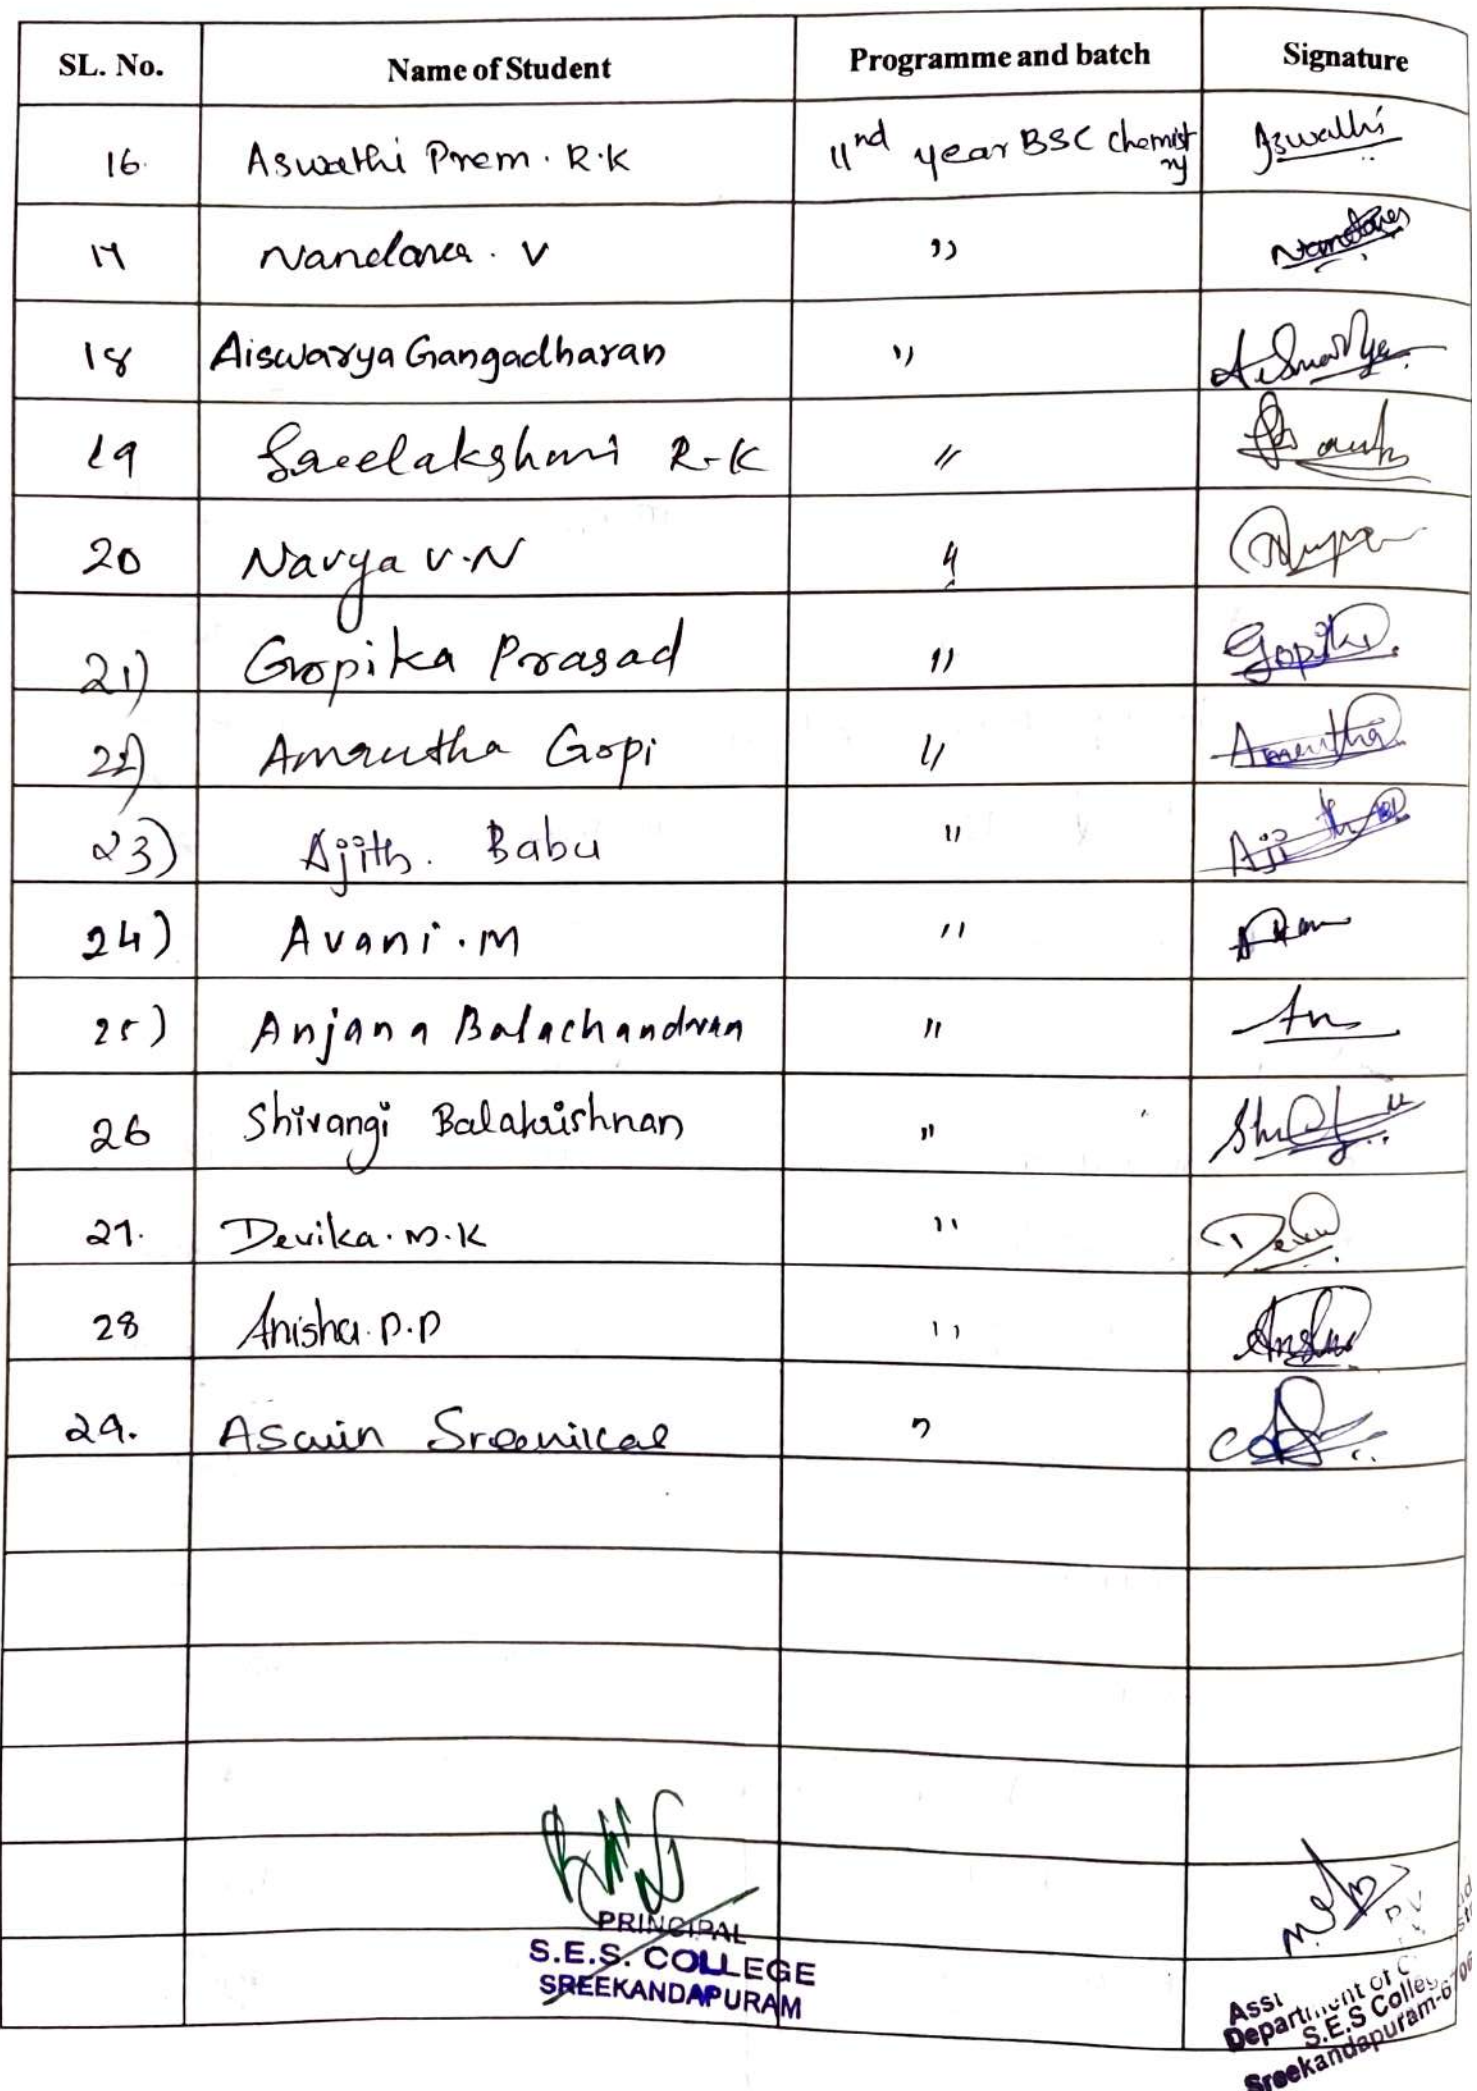 SL. No. Name of Student Programme and batch Signature
16. Aswathi Prem. R.K IInd year BSC Chemistry Aswathi
17 Nandana. V ,, Nandana
18 Aiswarya Gangadharan ,, Aiswarya
19 Sreelakshmi R.K "
20 Navya V.N "
21) Gopika Prasad " Gopika
22) Amrutha Gopi " Amrutha
23) Ajith. Babu " Ajith
24) Avani. M "
25) Anjana Balachandran " An
26 Shivangi Balakrishnan "
27. Devika. M. K "
28 Anisha. P. P "
29. Aswin Sreenilal "
PRINCIPAL
S.E.S. COLLEGE
SREEKANDAPURAM
Department of
S.E.S College
Sreekandapuram-